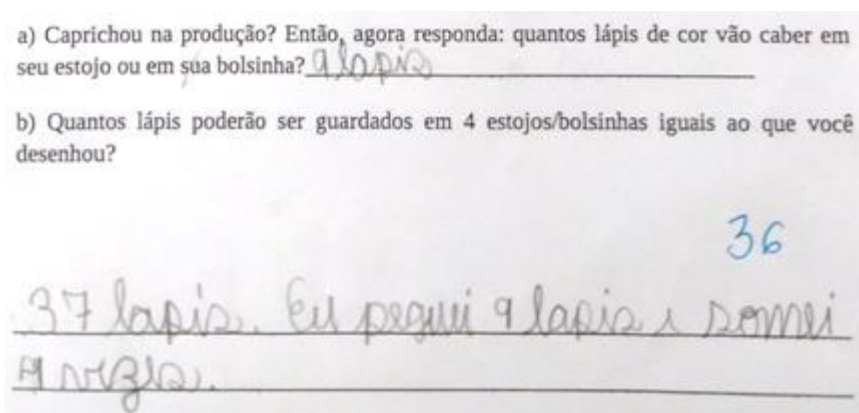 a) Caprichou na produção? Então, agora responda: quantos lápis de cor vão caber em
seu estojo ou em sua bolsinha? 9 lapis
b) Quantos lápis poderão ser guardados em 4 estojos/bolsinhas iguais ao que você
desenhou?
36
37 lapis. Eu pegui 9 lapis i somei
4 vezis.